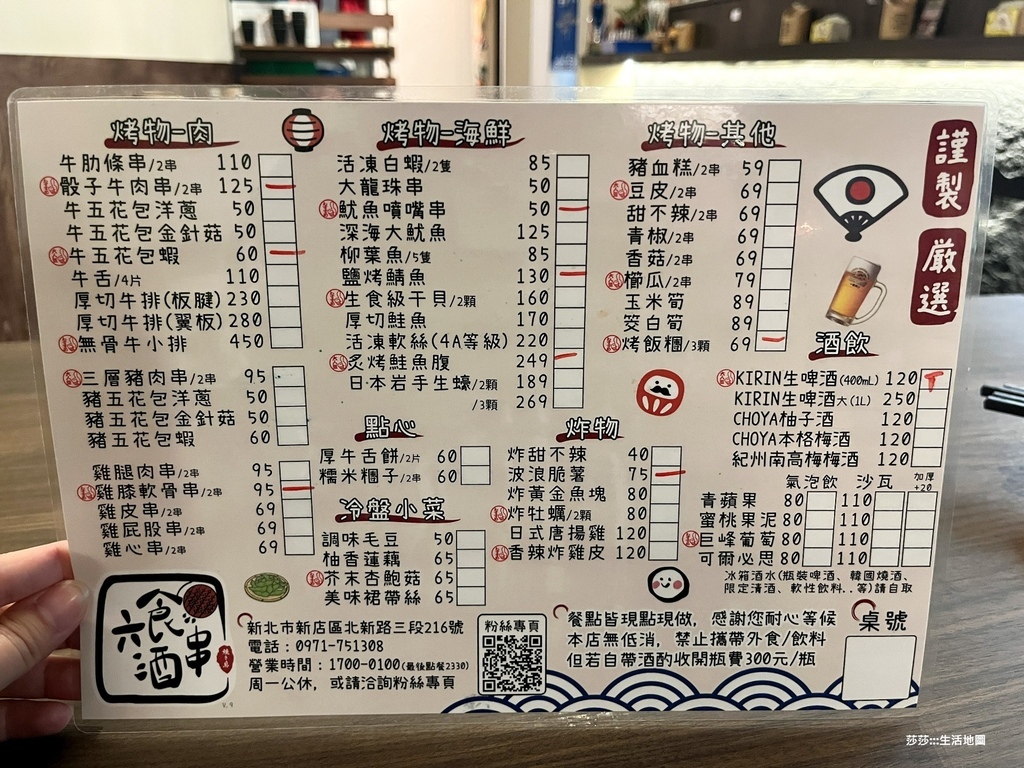 烤物-肉
牛肋條串/2串 110
骰子牛肉串/2串 125
牛五花包洋蔥 50
牛五花包金針菇 50
牛五花包蝦 60
牛舌/4片 110
厚切牛排(板腱) 230
厚切牛排(翼板) 280
無骨牛小排 450
三層豬肉串/2串 95
豬五花包洋蔥 50
豬五花包金針菇 50
豬五花包蝦 60
雞腿肉串/2串 95
雞膝軟骨串/2串 95
雞皮串/2串 69
雞屁股串/2串 69
雞心串/2串 69
烤物-海鮮
活凍白蝦/2隻 85
大龍珠串 50
魷魚噴嘴串 50
深海大魷魚 125
柳葉魚/5隻 85
鹽烤鯖魚 130
生食級干貝/2顆 160
厚切鮭魚 170
活凍軟絲(4A等級) 220
炙烤鮭魚腹 249
日本岩手生蠔/2顆 189
/3顆 269
點心
厚牛舌餅/2片 60
糯米糰子/2串 60
冷盤小菜
調味毛豆 50
柚香蓮藕 65
芥末杏鮑菇 65
美味裙帶絲 65
炸物
炸甜不辣 40
波浪脆薯 75
炸黃金魚塊 80
炸牡蠣/2顆 80
日式唐揚雞 120
香辣炸雞皮 120
烤物-其他
豬血糕/2串 59
豆皮/2串 69
甜不辣/2串 69
青椒/2串 69
香菇/2串 69
櫛瓜/2串 79
玉米筍 89
筊白筍 89
烤飯糰/3顆 69
謹製
厳選
酒飲
KIRIN生啤酒(400mL) 120
KIRIN生啤酒大(1L) 250
CHOYA柚子酒 120
CHOYA本格梅酒 120
紀州南高梅梅酒 120
氣泡飲 沙瓦 加厚+20
青蘋果 80 110
蜜桃果泥 80 110
巨峰葡萄 80 110
可爾必思 80 110
冰箱酒水(瓶裝啤酒、韓國燒酒、
限定清酒、軟性飲料..等)請自取
食串
六酒
V.9
新北市新店區北新路三段216號
電話:0971-751308
營業時間:1700-0100(最後點餐2330)
周一公休，或請洽詢粉絲專頁
粉絲專頁
餐點皆現點現做，感謝您耐心等候
本店無低消，禁止攜帶外食/飲料
但若自帶酒酌收開瓶費300元/瓶
桌號
莎莎:::生活地圖